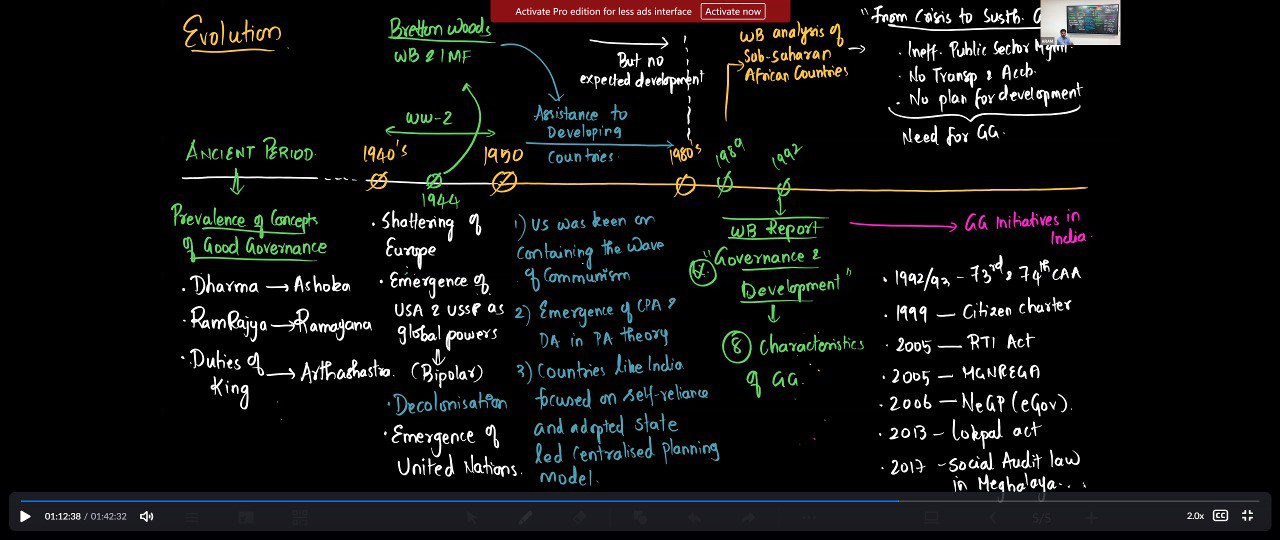 Activate Pro edition for less ads interface Activate now
Evolution
Bretton Woods
WB & IMF
WW-2
But no
expected development
Assistance to
Developing
Countries.
WB analysis of
Sub-saharan
African Countries
"From Crisis to Sustn. G
• Ineff. Public Sector Mgmt.
• No Transp & Accb.
• No plan for development
Need for GG.
ANCIENT PERIOD
1940's
1944
1950
1980's
1989
1992
Prevalence of Concepts
of Good Governance
• Dharma → Ashoka
• RamRajya → Ramayana
• Duties of
King → Arthashastra.
• Shattering of
Europe
• Emergence of
USA & USSR as
global powers
(Bipolar)
• Decolonisation
• Emergence of
United Nations.
1) US was keen on
containing the wave
of Communism
2) Emergence of CPA &
DA in PA theory
3) Countries like India
focused on self-reliance
and adopted state
led centralised planning
model.
WB Report
"Governance &
Development"
8 Characteristics
of GG.
GG Initiatives in
India.
• 1992/93 - 73rd & 74th CAA
• 1999 - Citizen charter
• 2005 - RTI Act
• 2005 - MGNREGA
• 2006 - NeGP (eGov).
• 2013 - Lokpal act
• 2017 - Social Audit law
in Meghalaya...
01:12:38 / 01:42:32
5/5
2.0x
CC